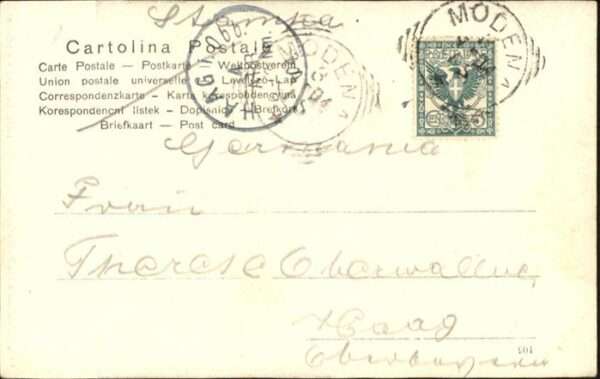 Stampa
Cartolina Postale
Carte Postale — Postkarte — Weltpostverein
Union postale universelle — Levelező-Lap
Correspondenzkarte — Karta korespondencyjna
Korespondencní listek — Dopisnice — Brefkort
Briefkaart — Post card
MODENA
MODENA
HAAG
Germania
Frau
Therese Oberwallner
Haag
Oberbayern